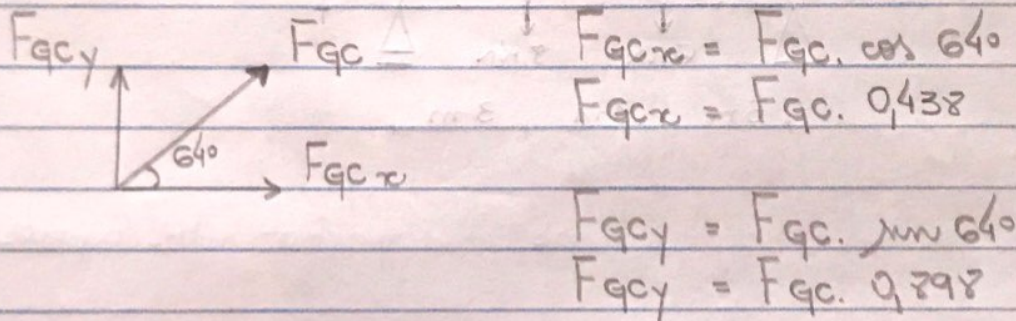 FGCy
FGC
64°
FGCx
FGCx = FGC. cos 64°
FGCx = FGC. 0,438
FGCy = FGC. sen 64°
FGCy = FGC. 0,898